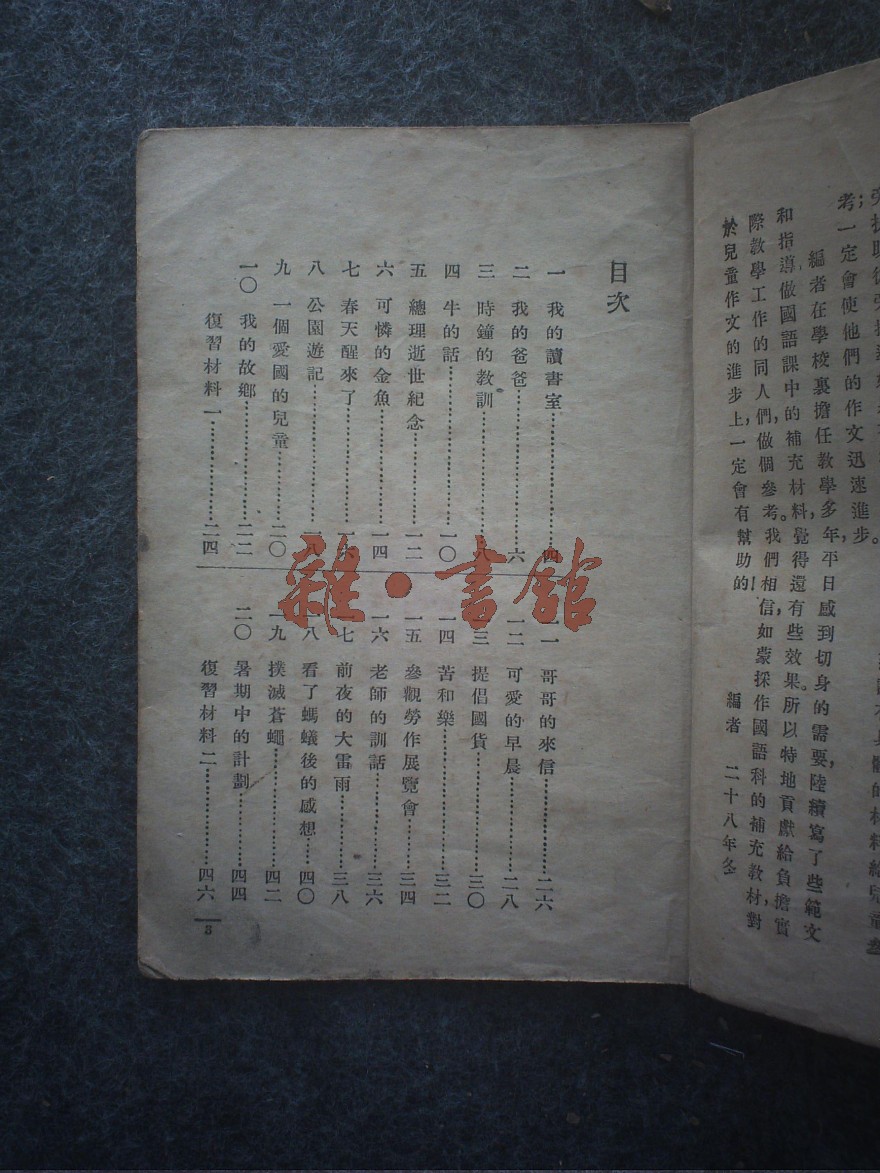 的材料給兒童參
考；一定會使他們的作文迅速進步。
編者在學校裏擔任教學多年，平日感到切身的需要，陸續寫了些範文
和指導做國語課中的補充材料，覺得還有些效果。所以特地貢獻給負擔實
際教學工作的同人們，做個參考。我們相信，如蒙採作國語科的補充教材，對
於兒童作文的進步上，一定會有幫助的！
編者 二十八年冬
目次
一 我的讀書室……四
二 我的爸爸……六
三 時鐘的教訓……八
四 牛的話……一〇
五 總理逝世紀念……一二
六 可憐的金魚……一四
七 春天醒來了……一六
八 公園遊記……一八
九 一個愛國的兒童……二〇
一〇 我的故鄉……二二
復習材料一……二四
一一 哥哥的來信……二六
一二 可愛的早晨……二八
一三 提倡國貨……三〇
一四 苦和樂……三二
一五 參觀勞作展覽會……三四
一六 老師的訓話……三六
一七 前夜的大雷雨……三八
一八 看了螞蟻後的感想……四〇
一九 撲滅蒼蠅……四二
二〇 暑期中的計劃……四四
復習材料二……四六
3
雜·書館